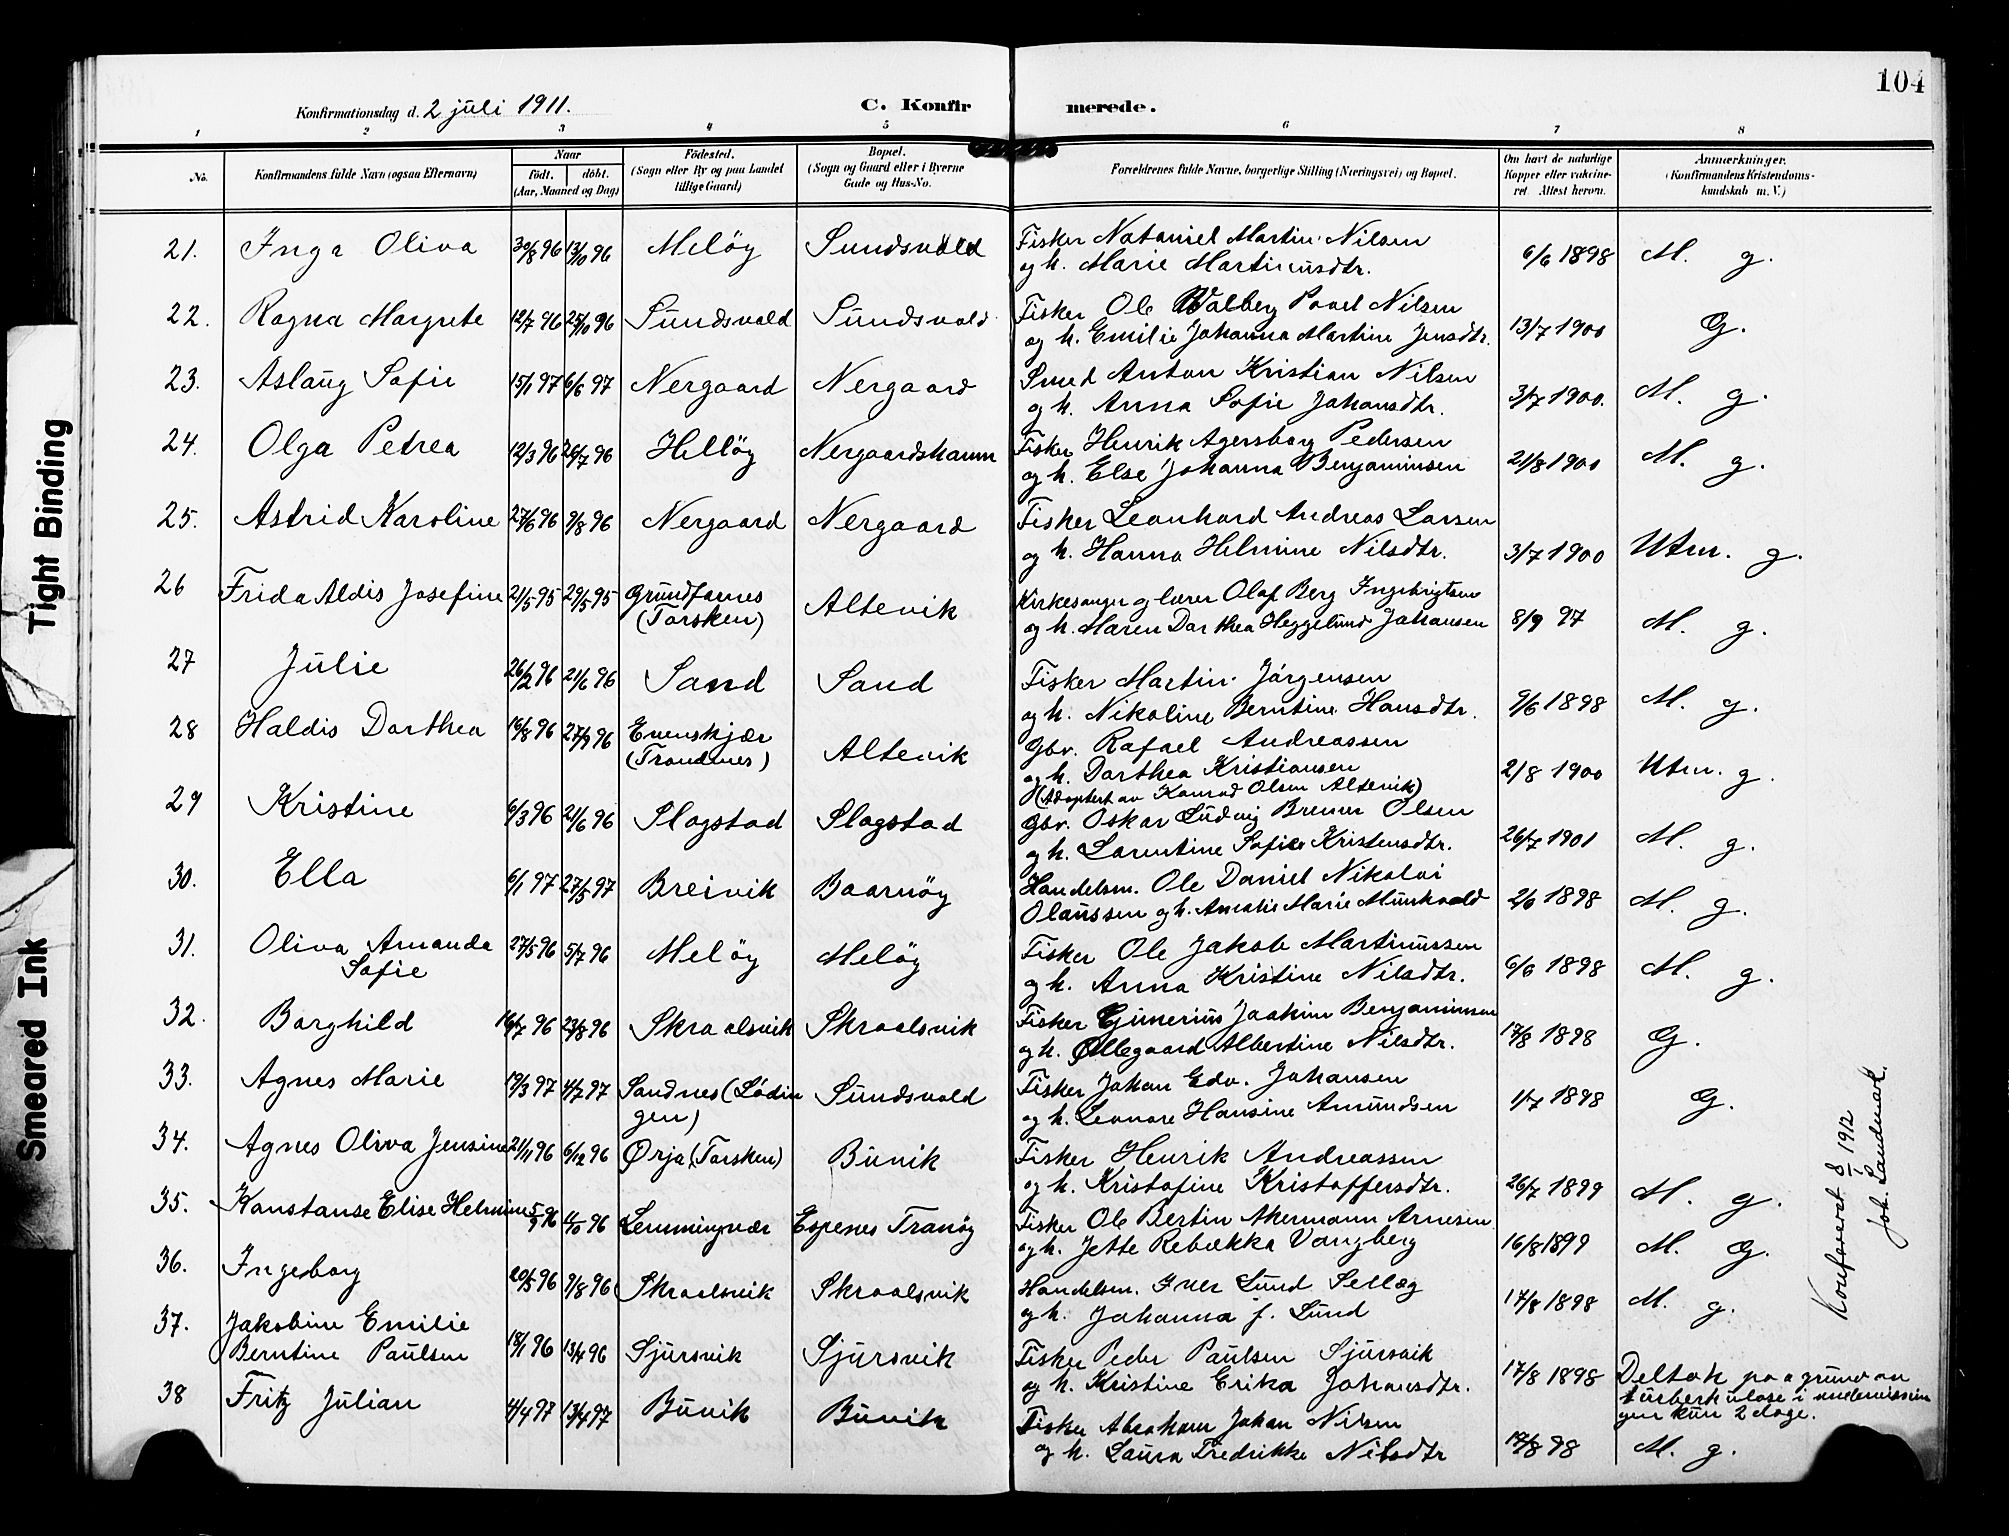 104
Konfirmationsdag d. 2 juli 1911.
C. Konfirmerede.
1 2 3 4 5 6 7 8
No.
Konfirmandens fulde Navn (ogsaa Efternavn)
Naar
födt. döbt.
(Aar, Maaned og Dag)
Födested.
(Sogn eller By og paa Landet
tillige Gaard)
Bopæl.
(Sogn og Gaard eller i Byerne
Gade og Hus-No.
Forældrenes fulde Navne, borgerlige Stilling (Næringsvei) og Bopæl.
Om havt de naturlige
Kopper eller vakcine-
ret Attest herom.
Anmærkninger.
(Konfirmandens Kristendoms-
kundskab m. V.)
21. Inga Oliva 30/8 96 13/10 96 Melöy Sundsvold Fisker Nataniel Martin Nilsen
og h. Marie Martinusdtr. 6/6 1898 M. g.
22. Ragna Margrete 12/7 96 25/10 96 Sundsvold Sundsvold Fisker Ole Walberg Povel Nilsen
og h. Emilie Johanna Martine Jensdtr. 13/7 1900 G.
23. Aslaug Sofie 15/1 97 6/6 97 Nergaard Nergaard Smed Anton Kristian Nilsen
og h. Anna Sofie Johansdtr. 3/7 1900. M. g.
24. Olga Petrea 12/3 96 26/7 96 Hellöy Nergaardshamn Fisker Henrik Agersborg Pedersen
og h. Else Johanna Benjaminsen 21/8 1900 M. g.
25. Astrid Karoline 27/6 96 9/8 96 Nergaard Nergaard Fisker Leonhard Andreas Larsen
og h. Hanna Helmine Nilsdtr. 3/7 1900 Utm. g.
26 Frida Aldis Josefine 21/5 95 29/5 95 Grundfarnes
(Torsken) Altevik Kirkesanger og lærer Olaf Berg Ingebrigtsen
og h. Maren Dorthea Heggelund Johansen 8/9 97 M. g.
27 Julie 26/2 96 21/6 96 Sand Sand Fisker Martin Jörgensen
og h. Nikoline Berntine Hansdtr. 9/6 1898 M. g.
28 Haldis Dorthea 16/8 96 27/9 96 Evenskjær
(Trondnes) Altevik Gbr. Rafael Andreassen
og h. Dorthea Kristiansen
(Adoptert av Konrad Olsen Altevik) 2/8 1900 Utm. g.
29 Kristine 6/3 96 21/6 96 Slogstad Slagstad Gbr. Oskar Ludvig Bremer Olsen
og h. Larentine Sofie Kristensdtr. 26/7 1901 M. g.
30. Ella 6/1 97 27/5 97 Breivik Baarnöy Handelsm. Ole Daniel Nikolai
Olaussen og h. Amalie Marie Munkvold 2/6 1898 M. g.
31. Oliva Amanda
Sofie 27/5 96 5/7 96 Melöy Melöy Fisker Ole Jakob Martinussen
og h. Anna Kristine Nilsdtr. 6/6 1898 M. g.
32. Borghild 16/7 96 23/8 96 Skroalsvik Skroalsvik Fisker Gunerius Joakim Benjaminsen
og h. Øllegaard Albertine Nilsdtr. 17/8 1898 G.
33. Agnes Marie 19/3 97 4/7 97 Sandnes (Lödin
gen) Sundsvold Fisker Johan Edv. Johansen
og h. Leonore Hansine Amundsen 1/7 1898 G.
34. Agnes Oliva Jensine 21/11 96 6/12 96 Ørja (Torsken) Bunik Fisker Henrik Andreassen
og h. Kristofine Kristoffersdtr. 26/7 1899 M. g.
35. Konstanse Elise Helmine 5/9 96 4/10 96 Lemmingvær Espenes Tranöy Fisker Ole Bertin Akermann Arnesen
og h. Jette Rebækka Vangberg 16/8 1899 M. G.
36. Ingeborg 20/5 96 9/8 96 Skroalsvik Skroalsvik Handelsm. Iver Lund Sellæg
og h. Johanna f. Lund 17/8 1898 M. g.
37. Jakobine Emilie
Berntine Paulsen 18/1 96 13/4 96 Sjursvik Sjursvik Fisker Peder Paulsen Sjursvik
og h. Kristine Erika Johansdtr. 17/8 1898 Deltok paa grund av
turberkulose i undervisnin
gen kun 2 dage.
38 Fritz Julian 4/4 97 13/4 97 Buvik Buvik Fisker Abraham Johan Nilsen
og h. Laura Fredrikke Nilsdtr 17/8 98 M. g.
Konfereret 8/1 1912
Joh. Landmark.
Tight Binding
Smeared Ink